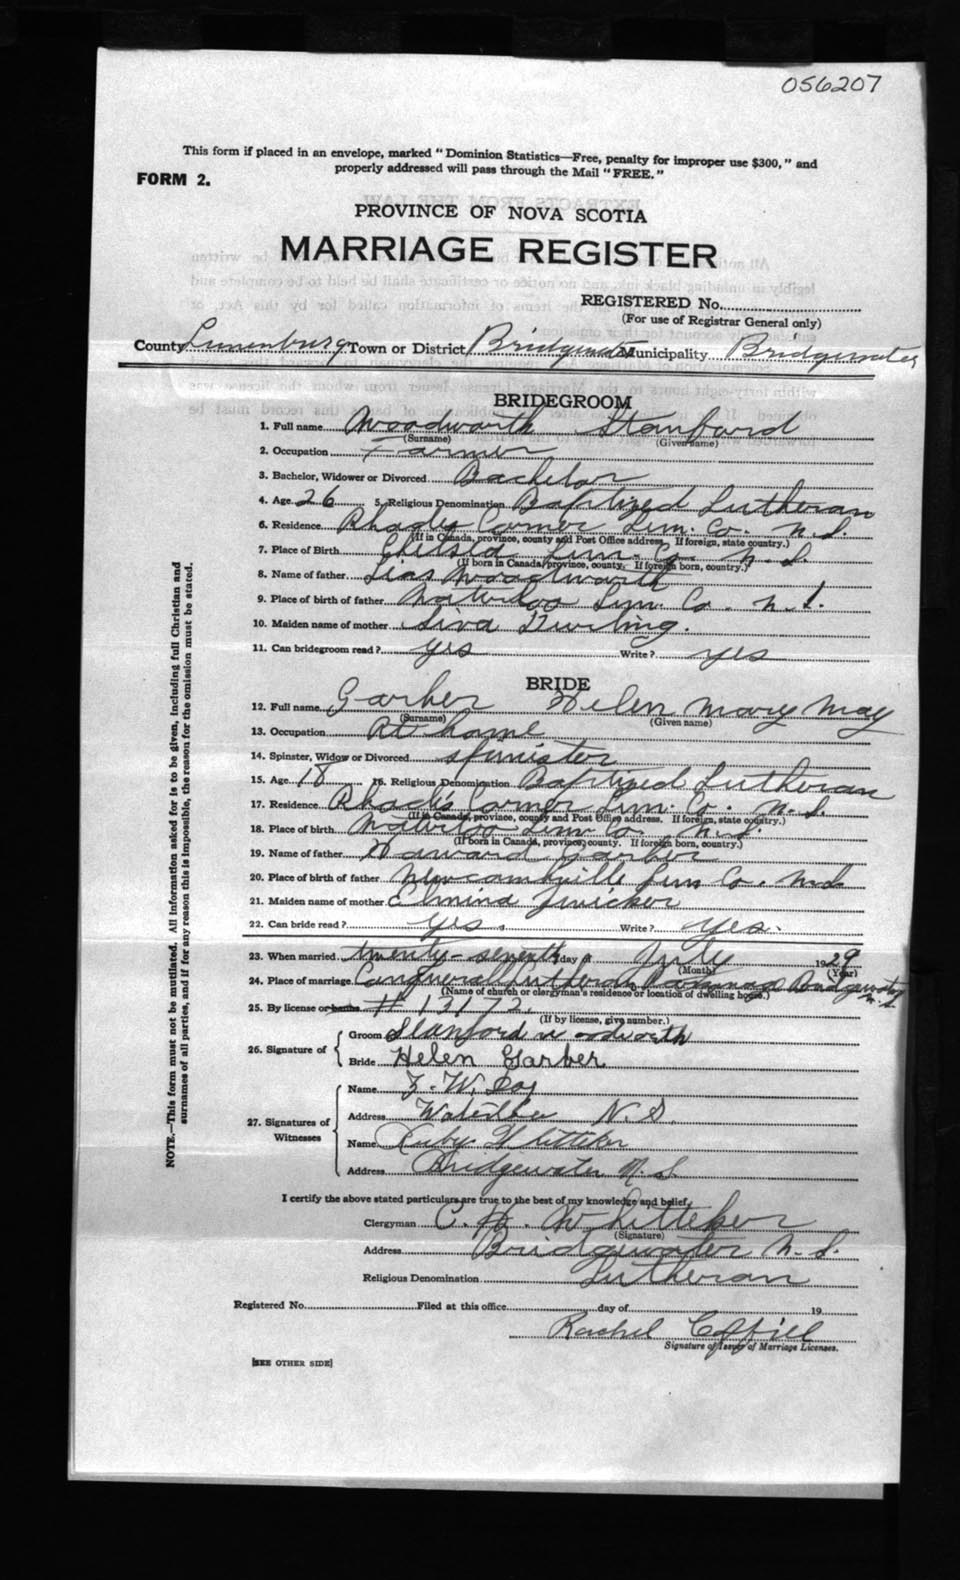 056207
This form if placed in an envelope, marked "Dominion Statistics—Free, penalty for improper use $300," and
properly addressed will pass through the Mail "FREE."
FORM 2.
PROVINCE OF NOVA SCOTIA
MARRIAGE REGISTER
REGISTERED No.
(For use of Registrar General only)
County Lunenburg Town or District Bridgewater Municipality Bridgewater
BRIDEGROOM
1. Full name Woodworth Stanford
(Surname) (Given name)
2. Occupation Farmer
3. Bachelor, Widower or Divorced Bachelor
4. Age 26 5. Religious Denomination Baptized Lutheran
6. Residence Rhodes Corner Lun. Co. N. S.
(If in Canada, province, county and Post Office address. If foreign, state country.)
7. Place of Birth Chelsea Lun. Co. N. S.
(If born in Canada, province, county. If foreign born, country.)
8. Name of father Woodworth
9. Place of birth of father Waterloo Lun. Co. N. S.
10. Maiden name of mother
11. Can bridegroom read? yes Write? yes
BRIDE
12. Full name Garber Helen Mary May
(Surname) (Given name)
13. Occupation At home
14. Spinster, Widow or Divorced spinister
15. Age 18 16. Religious Denomination Baptized Lutheran
17. Residence Rhode's Corner Lun. Co. N. S.
(If in Canada, province, county and Post Office address. If foreign, state country.)
18. Place of birth Waterloo Lun Co. N. S.
(If born in Canada, province, county. If foreign born, country.)
19. Name of father Garber
20. Place of birth of father Newcombville Lun Co. N.S.
21. Maiden name of mother Elmina Zwicker
22. Can bride read? yes. Write? yes.
23. When married twenty-seventh day of July 1929
(Month) (Year)
24. Place of marriage Conquerall Lutheran Parsonage Bridgewater N.S.
(Name of church or clergyman's residence or location of dwelling house.)
25. By license or banns # 13172.
(If by license, give number.)
26. Signature of Groom Stanford Woodworth
Bride Helen Garber
27. Signatures of Witnesses
Name
Address N. S.
Name Ruby Whitteker
Address Bridgewater N. S.
I certify the above stated particulars are true to the best of my knowledge and belief,
Clergyman C. H. Whitteker
(Signature)
Address Bridgewater N. S.
Religious Denomination Lutheran
Registered No. Filed at this office day of 19
Rachel Coffill
Signature of Issuer of Marriage Licenses.
[SEE OTHER SIDE]
NOTE.—This form must not be mutilated. All information asked for is to be given, including full Christian and
surnames of all parties, and if for any reason this is impossible, the reason for the omission must be stated.